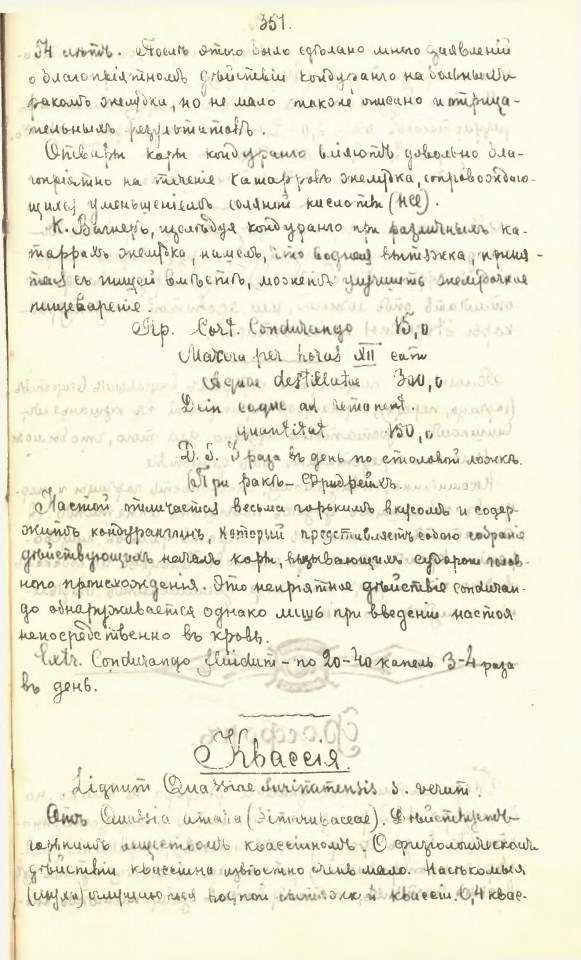 351.
54 лѣтъ. Послѣ этого было сдѣлано много заявленій
о благопріятномъ дѣйствіи кондуранго на больныхъ
ракомъ желудка, но не мало также описано и отрица-
тельныхъ результатовъ.
Отвары коры кондуранго вліяютъ довольно бла-
гопріятно на теченіе катарровъ желудка, сопровождаю-
щихся уменьшеніемъ соляной кислоты (HCl).
К. Вагнеръ, изслѣдуя кондуранго при различныхъ ка-
таррахъ желудка, нашелъ, что водная вытяжка, приня-
тая съ пищей вмѣстѣ, можетъ улучшить желудочное
пищевареніе.
Rp. Cort. Condurango 15,0
Macera per horas XII cum
Aquae destillatae 300,0
Dein coque ad remanent.
quantitat 150,0
D. S. 3 раза въ день по столовой ложкѣ.
При ракѣ – Фридрейхъ.
Настой отличается весьма горькимъ вкусомъ и содер-
житъ кондурангинъ, который представляетъ собою собраніе
дѣйствующихъ началъ коры, вызывающихъ судороги голов-
ного происхожденія. Это непріятное дѣйствіе conduran-
до обнаруживается однако лишь при введеніи настоя
непосредственно въ кровь.
Extr. Condurango fluidum – по 20–40 капель 3–4 раза
въ день.
Квассія.
Lignum Quassiae Surinamensis s. verum.
Отъ Quassia amara (Simarubaceae). Дѣйствуетъ
горькимъ веществомъ квассіиномъ. О физіологическомъ
дѣйствіи квассіина извѣстно очень мало. Насѣкомыя
(мухи) водной квассіи. 0,4 квас-